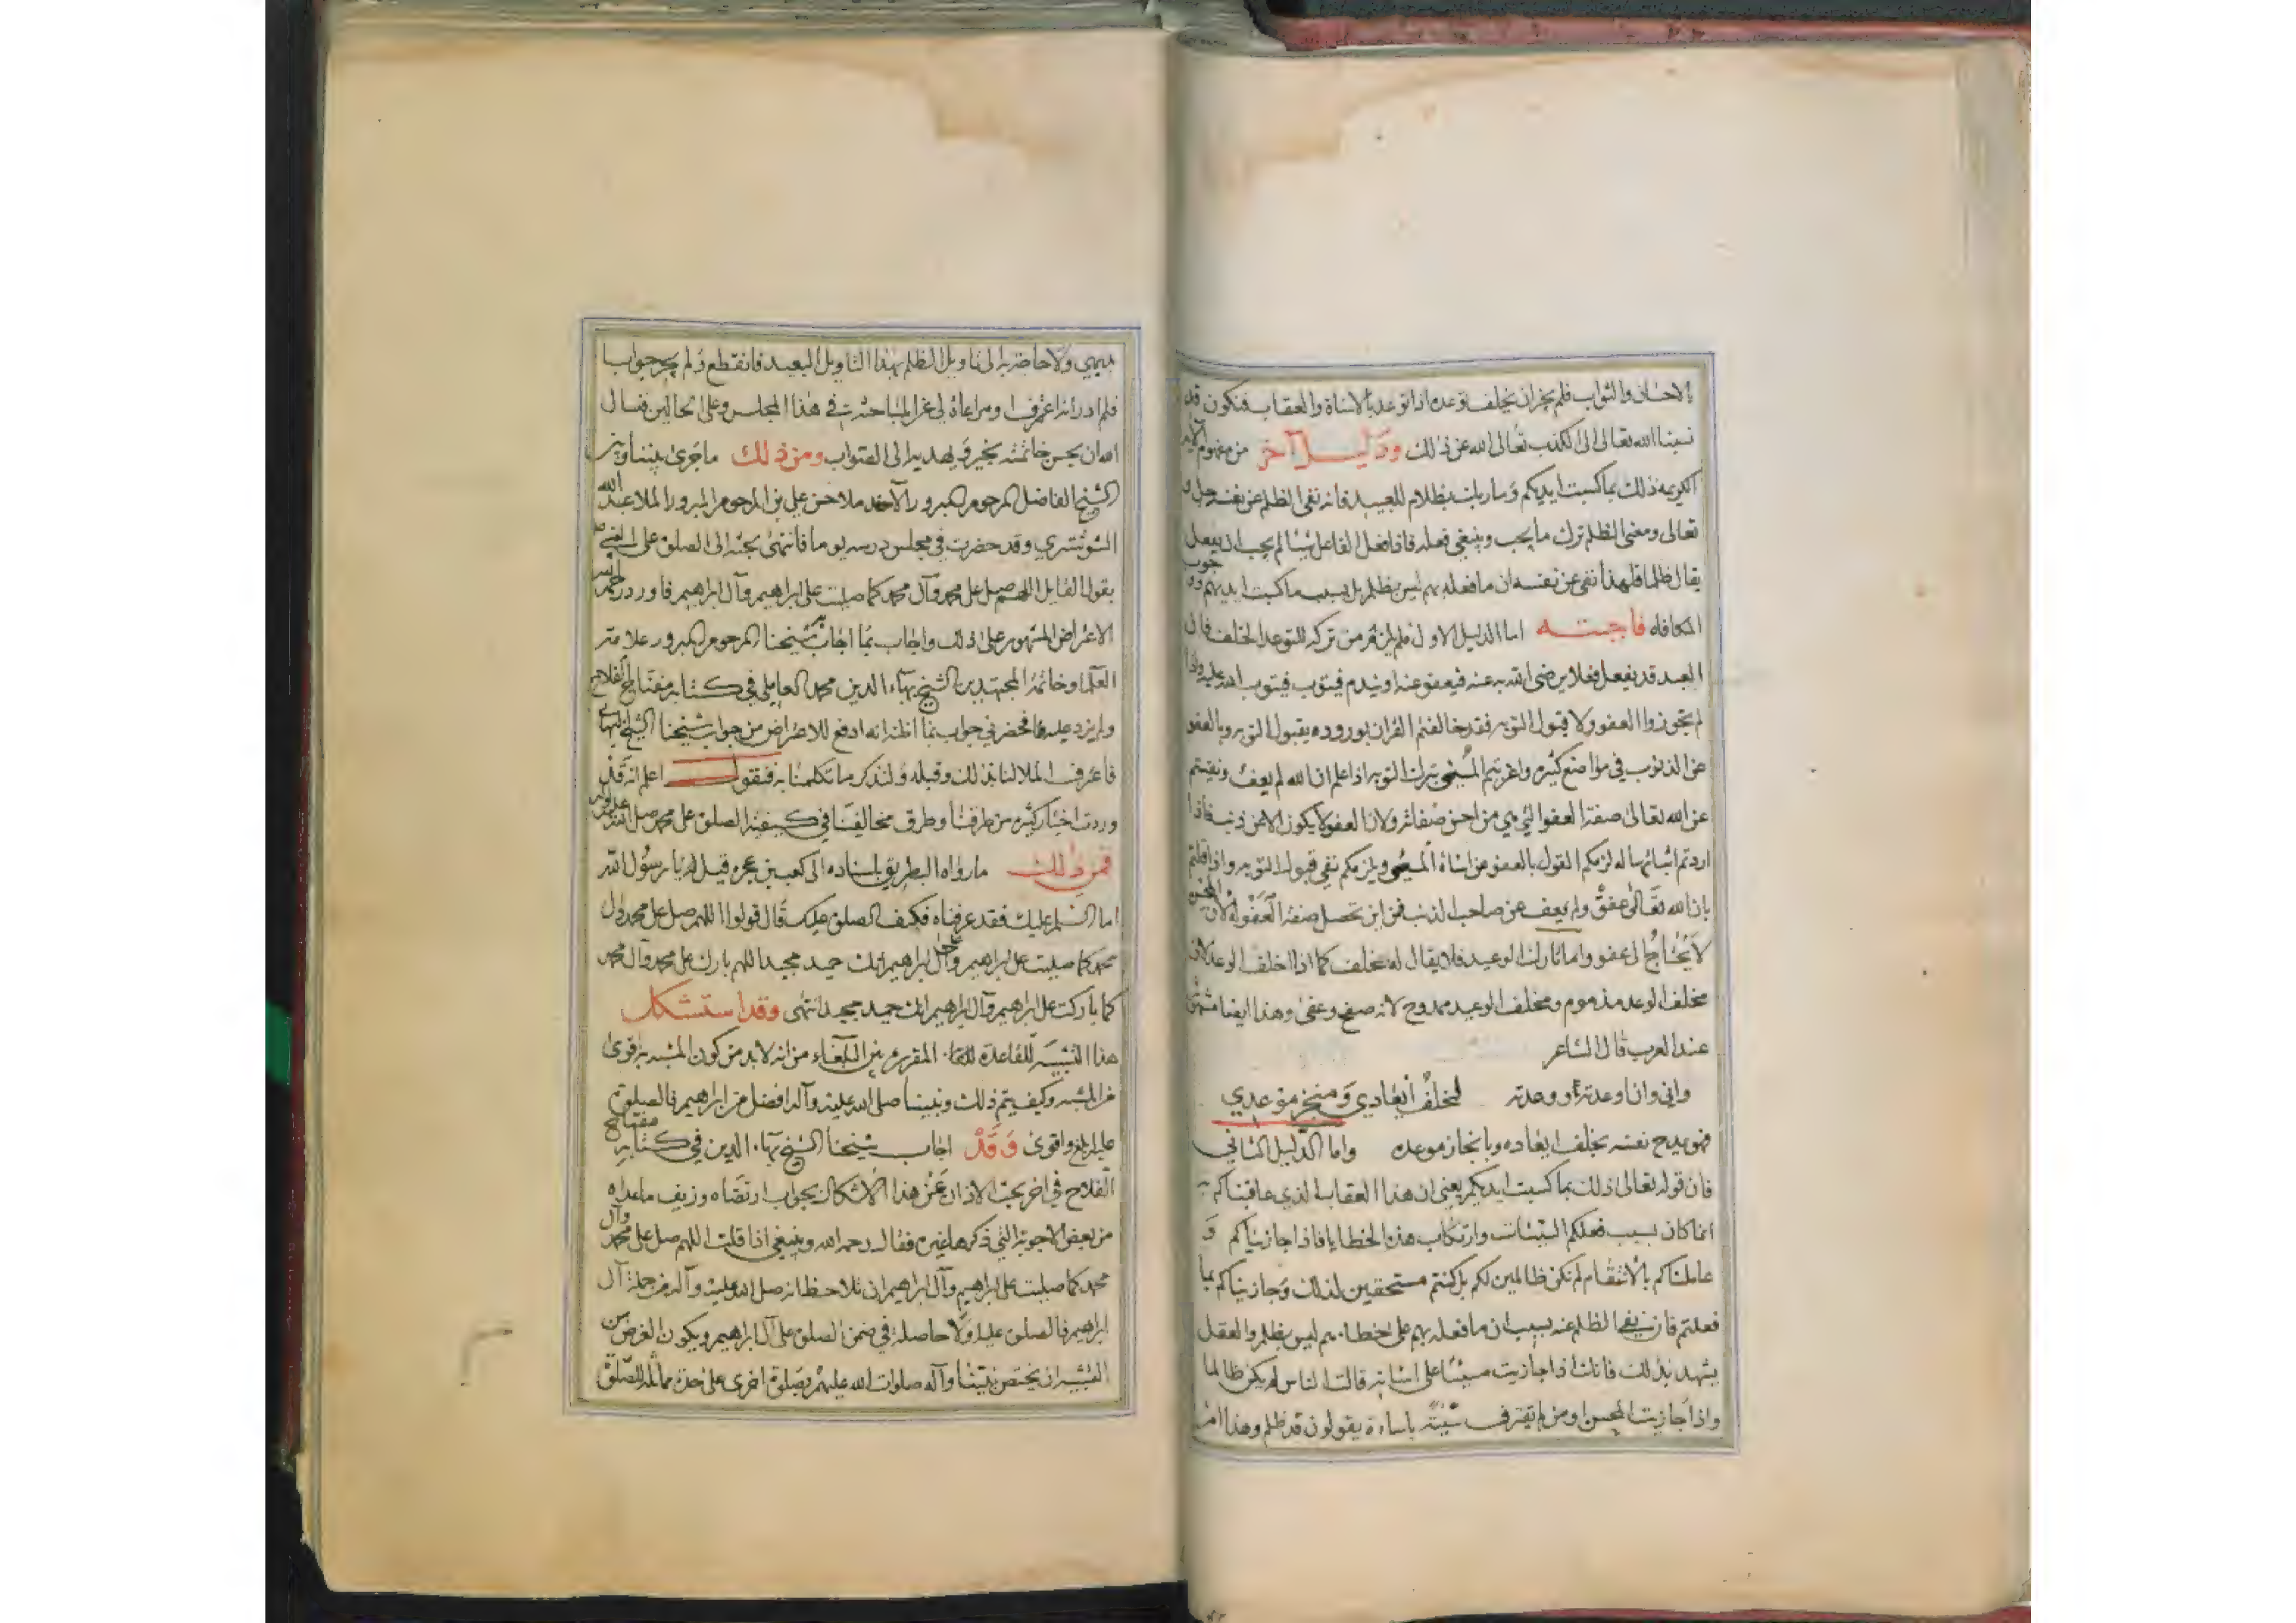 الاحسان والثواب فلم يجز ان يخلف توعده اذا توعد بالاساة والعقاب فتكون قد
نسبنا الله تعالى الى الكذب تعالى الله عن ذلك ودليل آخر من مفهوم الآية
الكريمه ذلك بما كسبت ايديكم وما ربك بظلام للعبيد فانه نفى الظلم عن نفسه جل و
تعالى ومعنى الظلم ترك ما يجب وينبغي فعله فاذا فعل الفاعل شيئا لم يجب ان يفعل
يقال ظلما فلهذا نفى عن نفسه ان ما فعله بهم ليس بظلم بل بسبب ما كسبت ايديهم ووجوب
المكافاه فاجبته اما الدليل الاول فلم يلزم من تركه للتوعد الخلف فان
العبد قد يفعل فعلا يرضى الله به عنه فيعفو عنه او يندم فيتوب فيتوب الله عليه واذا
لم تجوزوا العفو ولا قبول التوبه فقد خالفتم القران لوروده بقبول التوبه وبالعفو
عن الذنوب في مواضع كثيره واغريتم المسيئ بترك التوبه اذا علم ان الله لم يعف ونفيتم
عن الله تعالى صفة العفو التي هي من احسن صفاته ولان العفو لا يكون الا من ذنب فاذا
اردتم اثباتها له لزمكم القول بالعفو عن اساة المسيئ ويلزمكم نفي قبول التوبه واذا قلتم
بان الله تعالى عفو ولم يعف عن صاحب الذنب فمن اين تحصل صفة العفو له لان المحسن
لا يحتاج الى عفو واما تارك الوعيد فلا يقال له مخلف كما اذا اخلف الوعد لان
مخلف الوعد مذموم ومخلف الوعيد ممدوح لانه صفح وعفى وهذا ايضا
عند العرب قال الشاعر
واني وان اوعدته او وعدته لمخلف ايعادي ومنجز موعدي
فهو يمدح نفسه بخلف ايعاده وبانجاز موعده واما الدليل الثاني
فان قوله تعالى ذلك بما كسبت ايديكم يعني ان هذا العقاب الذي عاقبناكم به
انما كان بسبب فعلكم السيئات وارتكاب هذه الخطايا فاذا جازيناكم و
عاملناكم بالانتقام لم نكن ظالمين لكم بل كنتم مستحقين لذلك وجازيناكم بما
فعلتم فان نفي الظلم عنه بسبب ان ما فعله بهم على خطاهم ليس بظلم والعقل
يشهد بذلك فانك اذا جازيت مسيئا على اساته قالت الناس لم يكن ظالما
واذا جازيت المحسن او من لم يقترف سيئة باساءة يقولون قد ظلم وهذا امر
بديهي ولا حاجة الى تاويل الظلم بهذا التاويل البعيد فانقطع ولم يحر جوابا
فلم ادر انه اعترف او مراعاة لي عن المباحثة في هذا المجلس وعلى الحالين فنسال
الله ان يحسن خاتمته بخير ويهديه الى الصواب ومن ذلك ما جرى بيننا وبين
الشيخ الفاضل المرحوم المبرور الآخند ملا حسن علي بن المرحوم المبرور الملا عبد الله
الشوشتري وقد حضرت في مجلس درسه يوما فانتهى بحثه الى الصلوة على النبي ص
بقول القايل اللهم صل على محمد وآل محمد كما صليت على ابراهيم وآل ابراهيم فاورد رحمه الله
الاعتراض المشهور على ذلك واجاب بما اجاب به شيخنا المرحوم المبرور علامة
العلما وخاتمة المجتهدين الشيخ بهاء الدين محمد العاملي في كتابه مفتاح الفلاح
ولم يزد عليه فحضرني جواب بما اظن انه ادفع للاعتراض من جواب شيخنا الشيخ بهاء
فاعترف الملا لنا بذلك وقبله ولنذكر ما تكلمنا به فنقول اعلم انه قد
وردت اخبار كثيره من طرقنا وطرق مخالفينا في كيفية الصلوة على محمد صلى الله عليه واله
فمن ذلك ما رواه البطريق باسناده الى كعب بن عجره قيل له يا رسول الله
اما السلم عليك فقد عرفناه فكيف الصلوة عليك قال قولوا اللهم صل على محمد وال
محمد كما صليت على ابراهيم وعلى آل ابراهيم انك حميد مجيد اللهم بارك على محمد وآل محمد
كما باركت على ابراهيم وآل ابراهيم انك حميد مجيد انتهى وقد استشكل
هذا التشبيه للقاعدة المقررة بين البلغاء من انه لا بد من كون المشبه به اقوى
من المشبه وكيف يتم ذلك ونبينا صلى الله عليه وآله افضل من ابراهيم فالصلوة
عليه ابلغ واقوى وقد اجاب شيخنا الشيخ بهاء الدين في كتابه مفتاح
الفلاح في اخر بحث الاذان عن هذا الاشكال بجواب ارتضاه وزيف ما عداه
من بعض الاجوبة التي ذكرها غيره فقال رحمه الله وينبغي اذا قلت اللهم صل على محمد وآل
محمد كما صليت على ابراهيم وآل ابراهيم ان تلاحظ انه صلى الله عليه وآله من جملة آل
ابراهيم فالصلوة عليه اولا حاصلة في ضمن الصلوة على آل ابراهيم ويكون الغرض من
التشبيه ان يختص نبينا وآله صلوات الله عليهم بصلوة اخرى على حدة مماثلة للصلوة